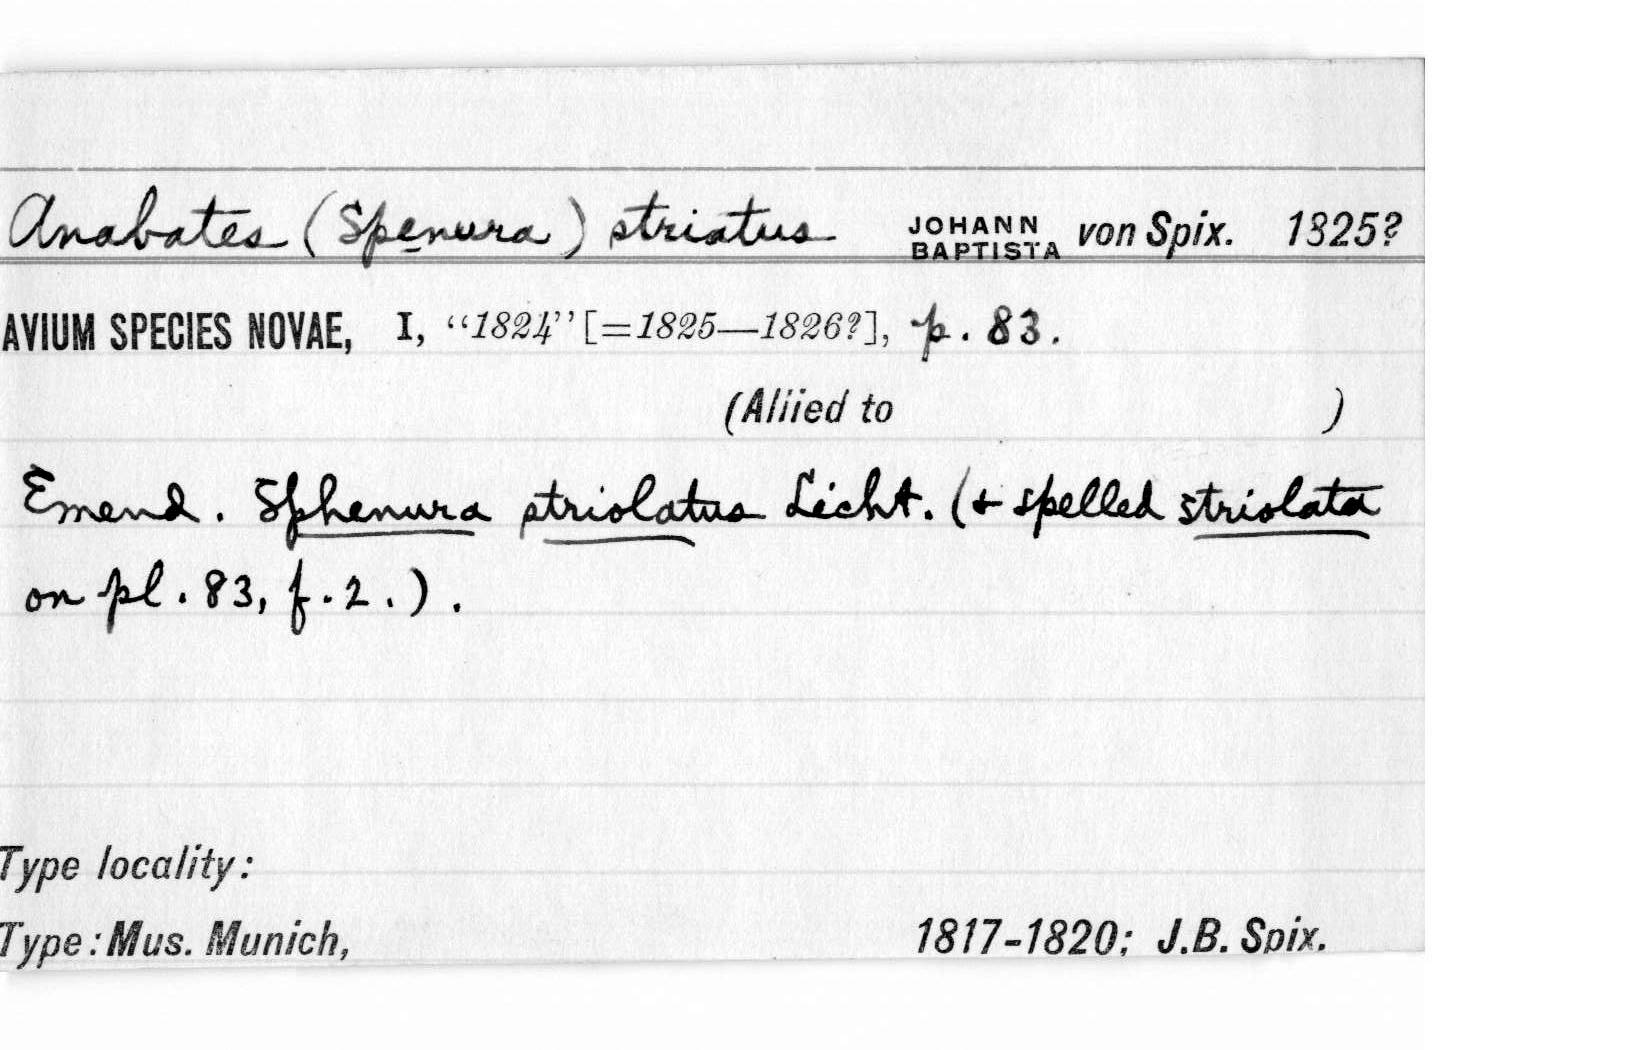 Anabates (Spenura) striatus JOHANN BAPTISTA von Spix. 1825?
AVIUM SPECIES NOVAE, I, “1824” [=1825—1826?], p. 83.
(Allied to )
Emend. Sphenura striolatus Licht. (& spelled striolata
on pl. 83, f. 2.).
Type locality:
Type: Mus. Munich, 1817-1820; J.B. Spix.